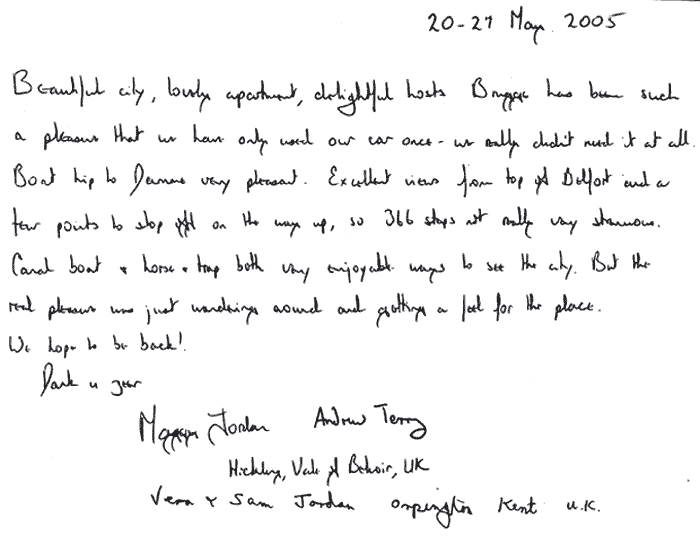 20-27 May 2005
Beautiful city, lovely apartment, delightful hosts Brugge has been such
a pleasure that we have only used our car once - we really didn't need it at all.
Boat trip to Damme very pleasant. Excellent views from top of Belfort and a
few points to stop off on the way up, so 366 steps not really very strenuous.
Canal boat + horse + trap both very enjoyable ways to see the city. But the
real pleasure was just wandering around and getting a feel for the place.
We hope to be back!
Dank u zeer
Jordan Andrew Terry
Hickling, Vale of Belvoir, UK
Vera + Sam Jordan Orpington Kent U.K.